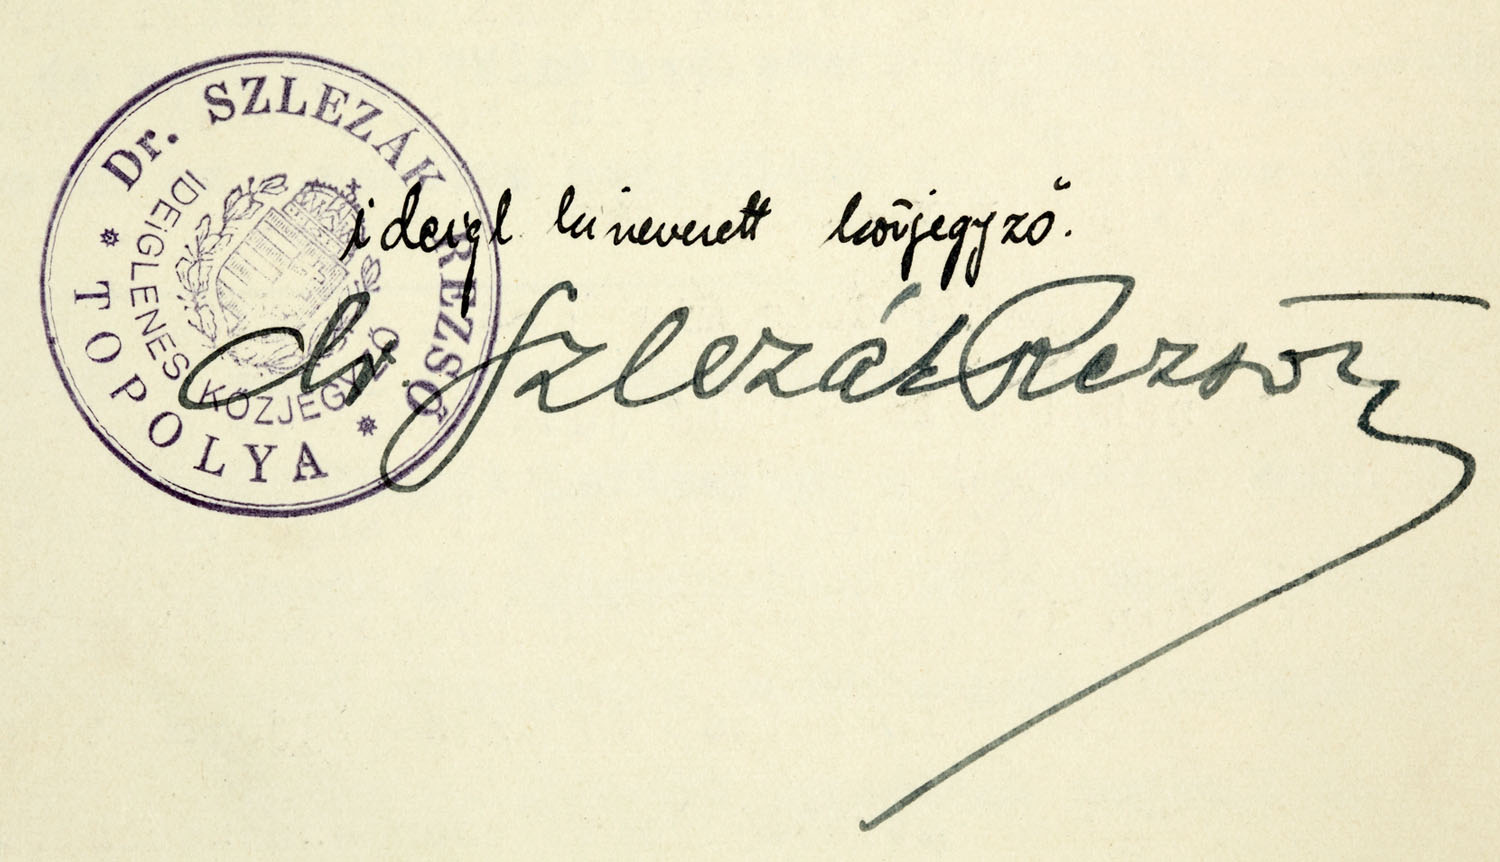 Dr. SZLEZÁK REZSŐ
IDEIGLENES KÖZJEGYZŐ
* TOPOLYA *
ideigl kinevezett közjegyző.
dr. Szlezák Rezső